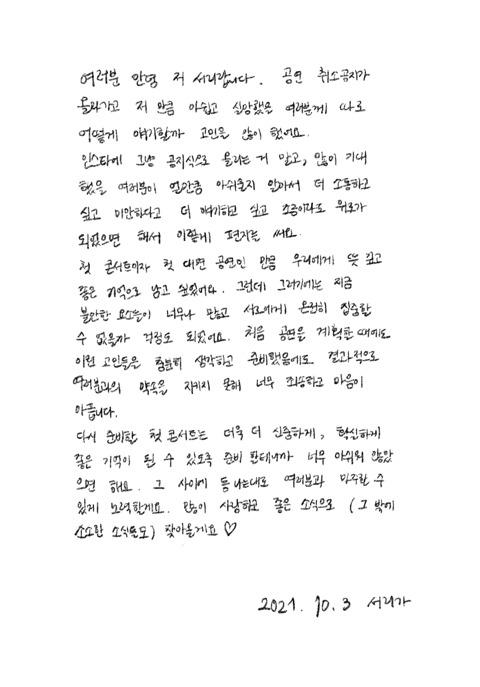 여러분 안녕 저 서리랍니다. 공연 취소공지가
올라가고 저 만큼 아쉽고 실망했을 여러분께 따로
어떻게 얘기할까 고민을 많이 했어요.
인스타에 그냥 공지식으로 올리는 거 말고, 많이 기대
했을 여러분이 얼만큼 아쉬울지 알아서 더 소통하고
싶고 미안하다고 더 얘기하고 싶고 조금이라도 위로가
되었으면 해서 이렇게 편지를 써요.
첫 콘서트이자 첫 대면 공연인 만큼 우리에게 뜻 깊고
좋은 기억으로 남고 싶었어요. 그런데 그러기에는 지금
불안한 요소들이 너무나 많고 서로에게 온전히 집중할
수 없을까 걱정도 되었어요. 처음 공연을 계획할 때에도
이런 고민들을 충분히 생각하고 준비했음에도 결과적으로
여러분과의 약속을 지키지 못해 너무 죄송하고 마음이
아픕니다.
다시 준비할 첫 콘서트는 더욱 더 신중하게, 확실하게
좋은 기억이 될 수 있도록 준비 할테니까 너무 아쉬워 않았
으면 해요. 그 사이에 틈 나는대로 여러분과 마주할 수
있게 노력할게요. 많이 사랑하고 좋은 소식으로 (그 밖에
소소한 소식들도) 찾아올게요 ♡
2021. 10. 3 서리가